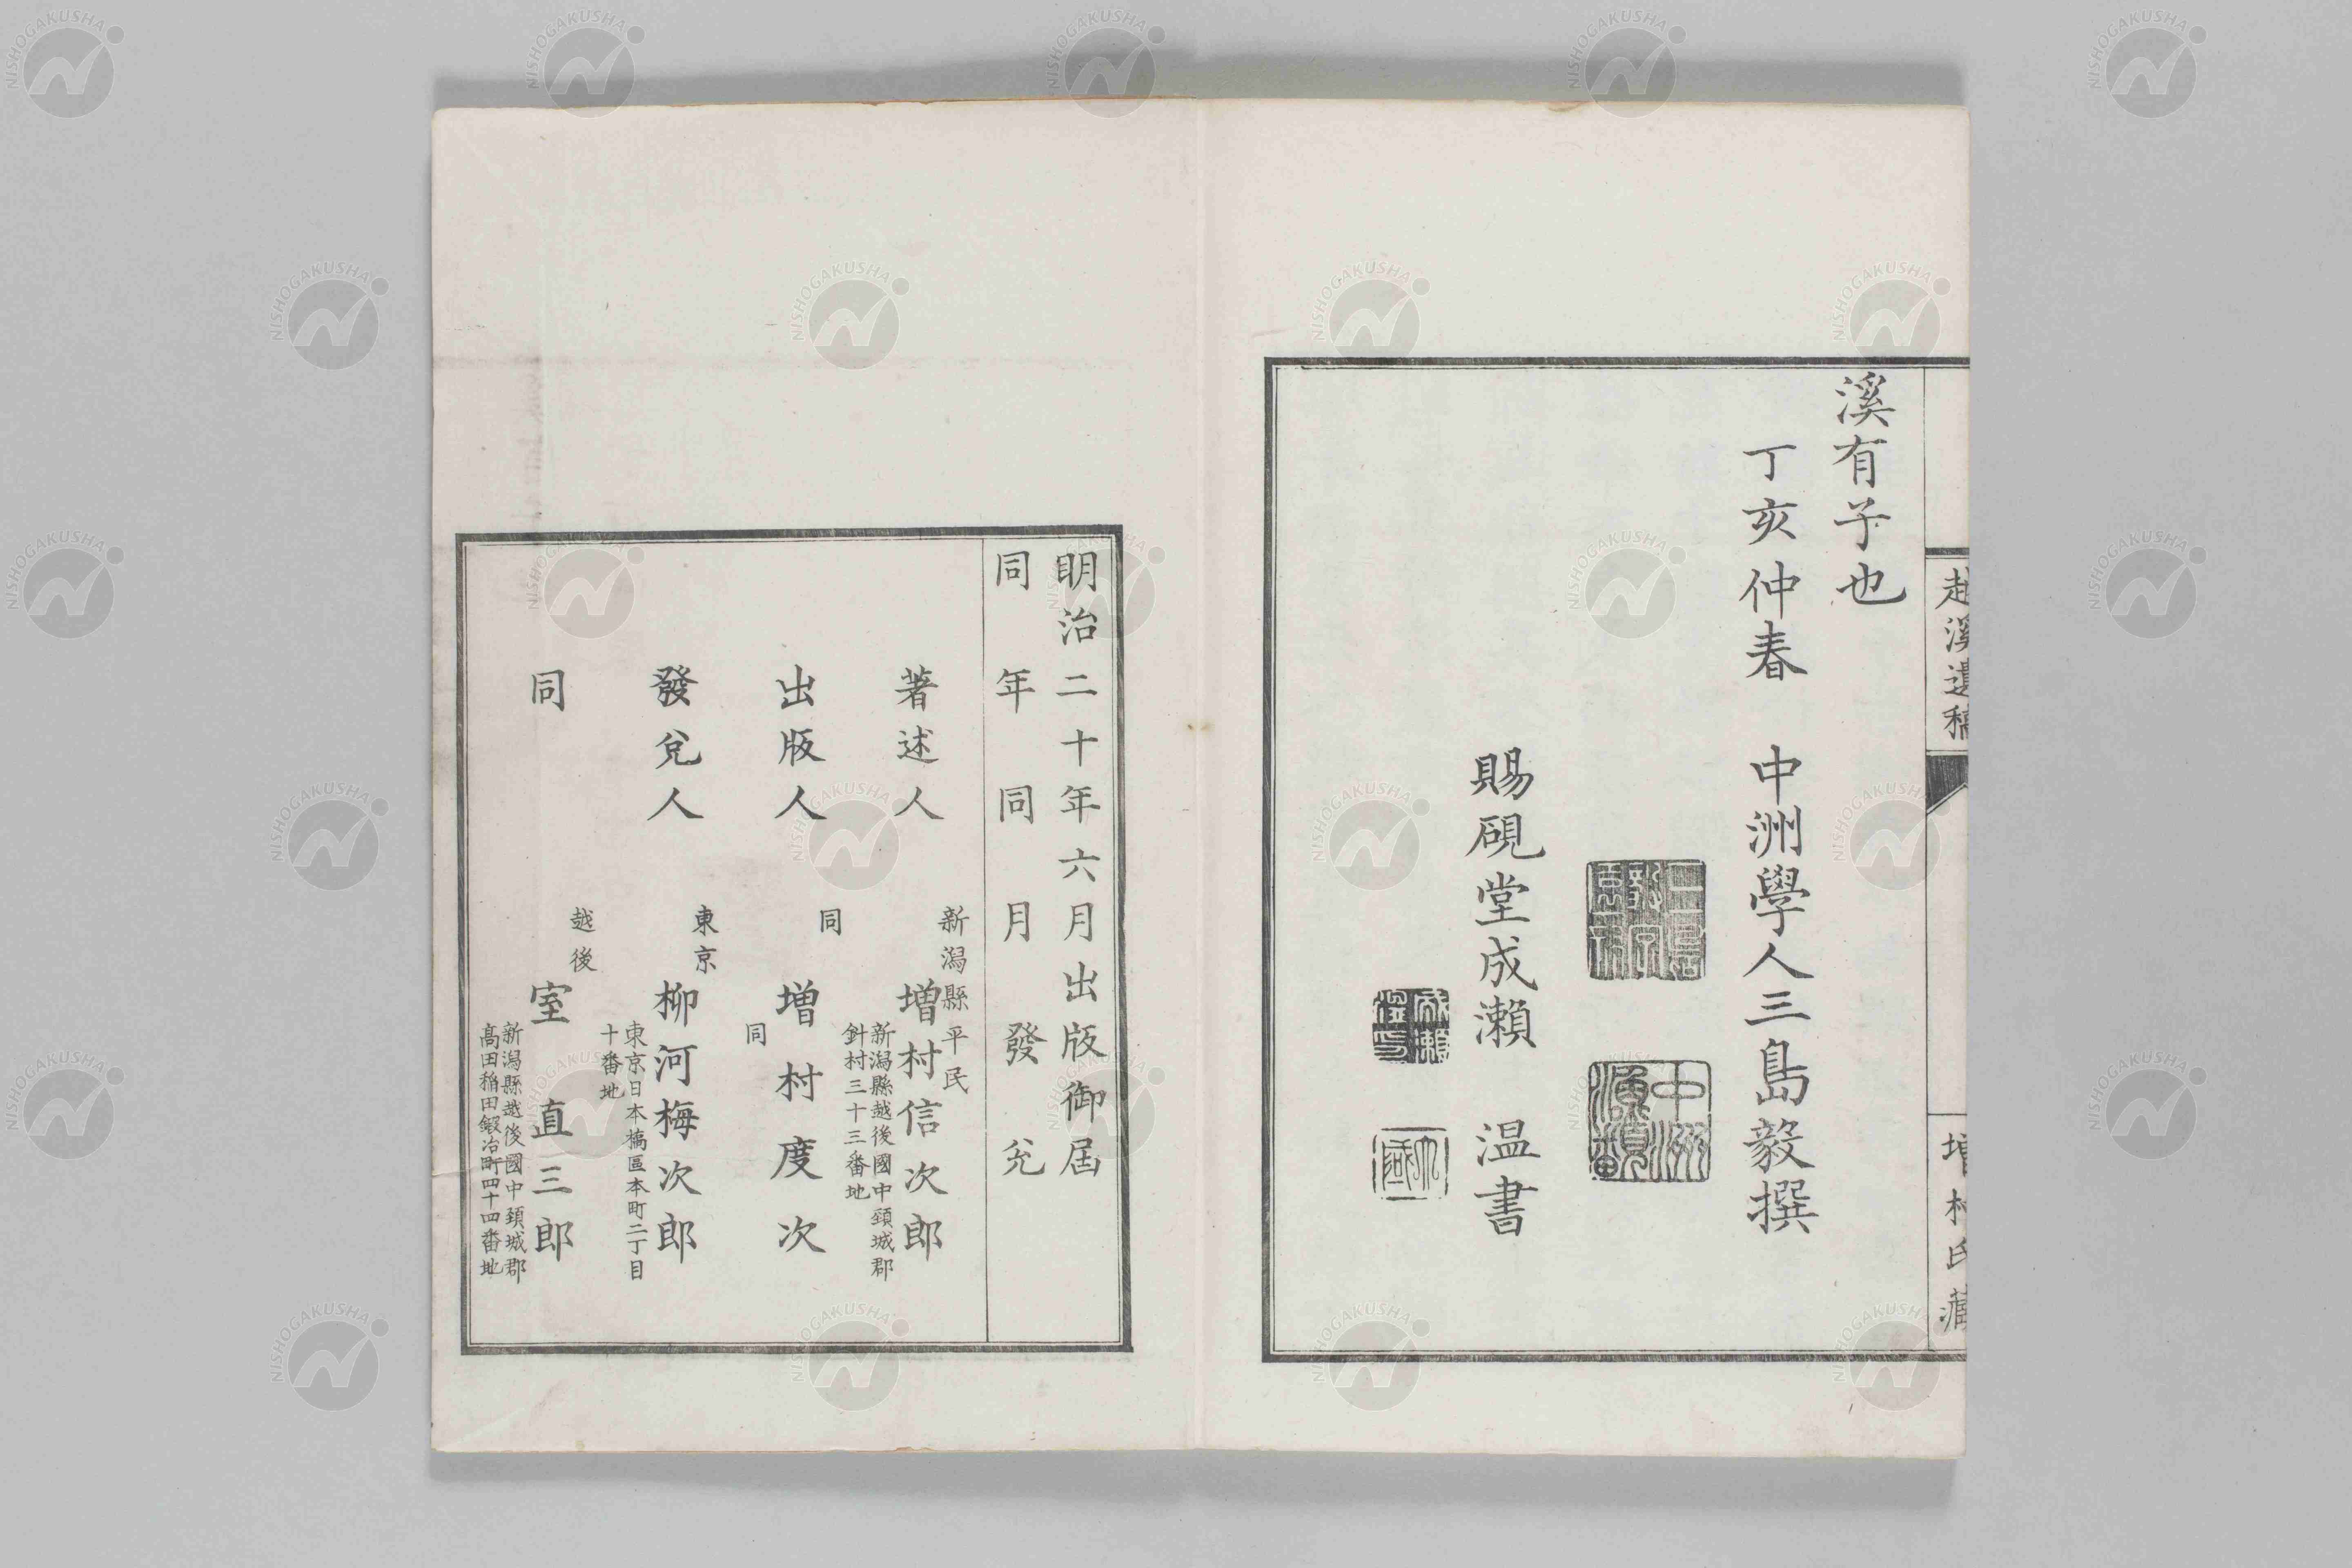 越溪遺稿
増村氏藏
溪有子也
丁亥仲春 中洲學人三島毅撰
賜硯堂成瀬 温書
明治二十年六月出版御届
同年同月發兌
著述人 新潟縣平民 増村信次郎
新潟縣越後國中頸城郡
針村三十三番地
出版人 同 増村度次
同
發兌人 東京 柳河梅次郎
東京日本橋區本町二丁目
十番地
同 越後 室直三郎
新潟縣越後國中頸城郡
髙田稲田鍛冶町四十四番地
NISHOGAKUSHA